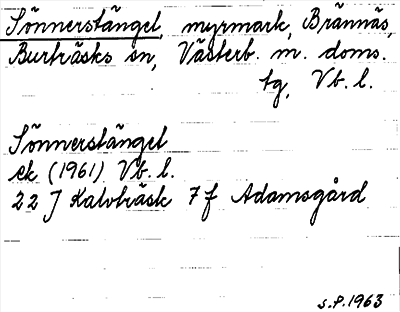 Sönnerstängel, myrmark, Brännäs,
Burträsks sn, Västerb. m. doms.
tg, Vb. l.
Sönnerstängel
ek (1961) Vb. l.
22 J Kalvträsk 7 f Adamsgård
s.P. 1963